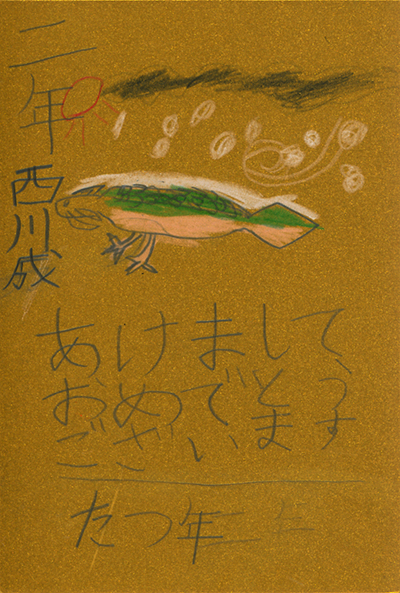 二年
西川成
あけまして、
おめでとう
ございます
たつ年二年